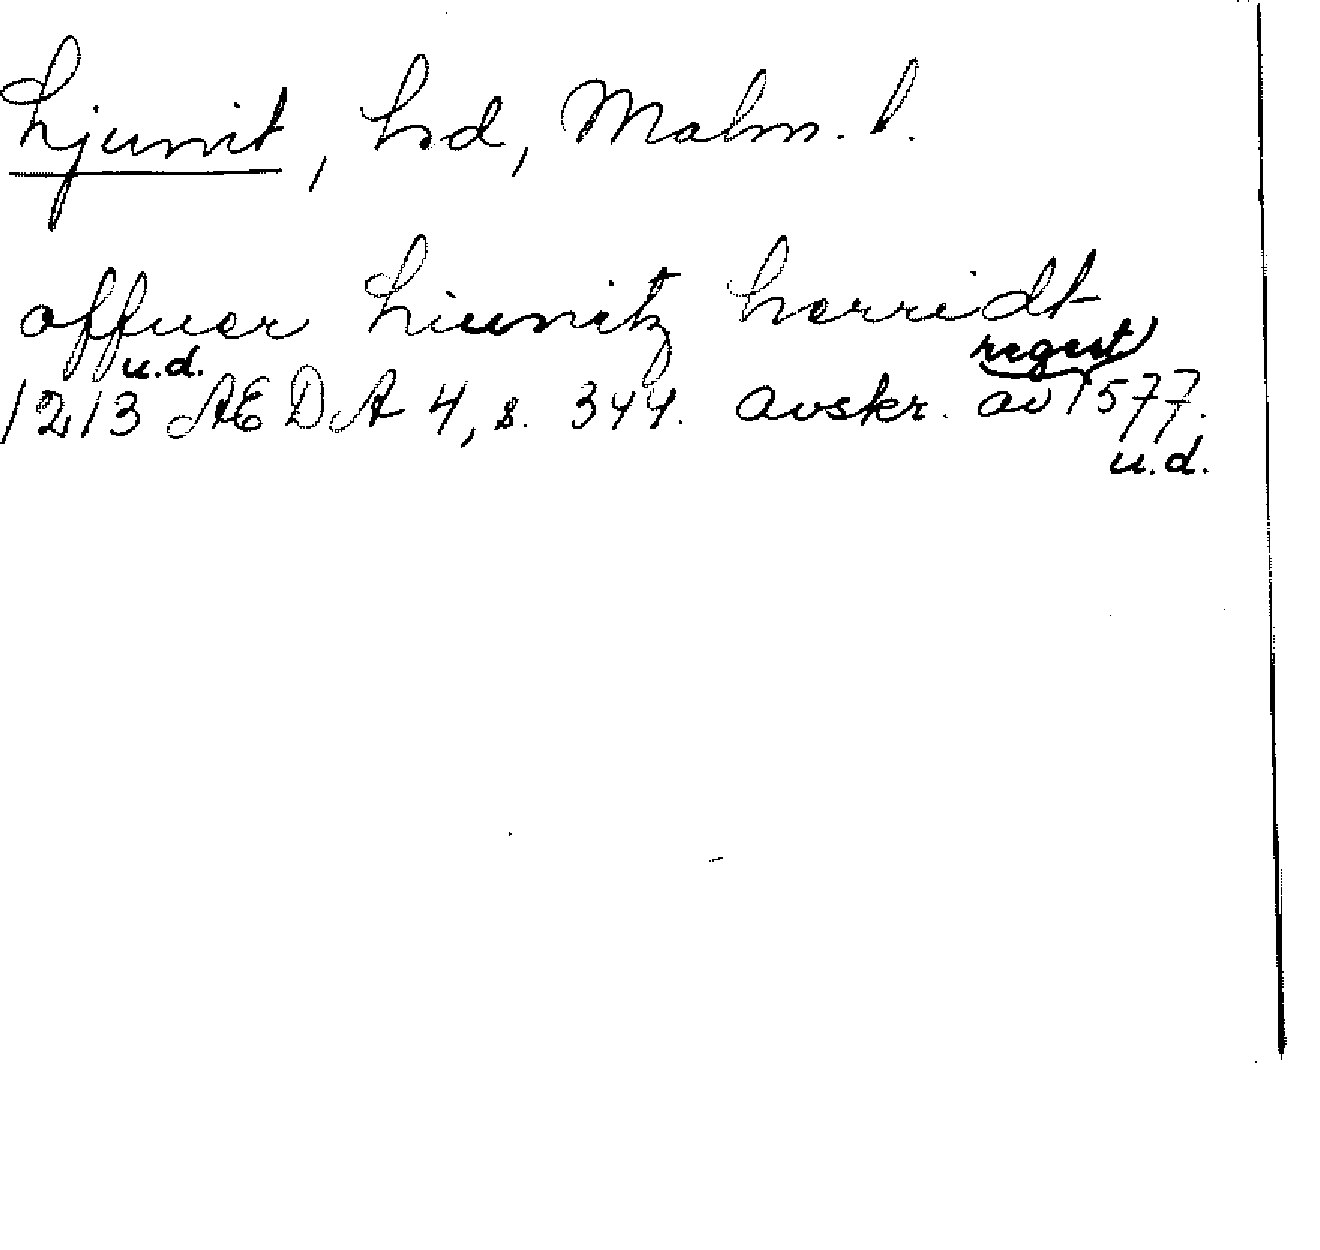 Ljunit, hd, Malm. l.
offuer Liunitz herridt
u.d.
regest
1213 AEDA 4, s. 344. avskr. av 1577.
u.d.